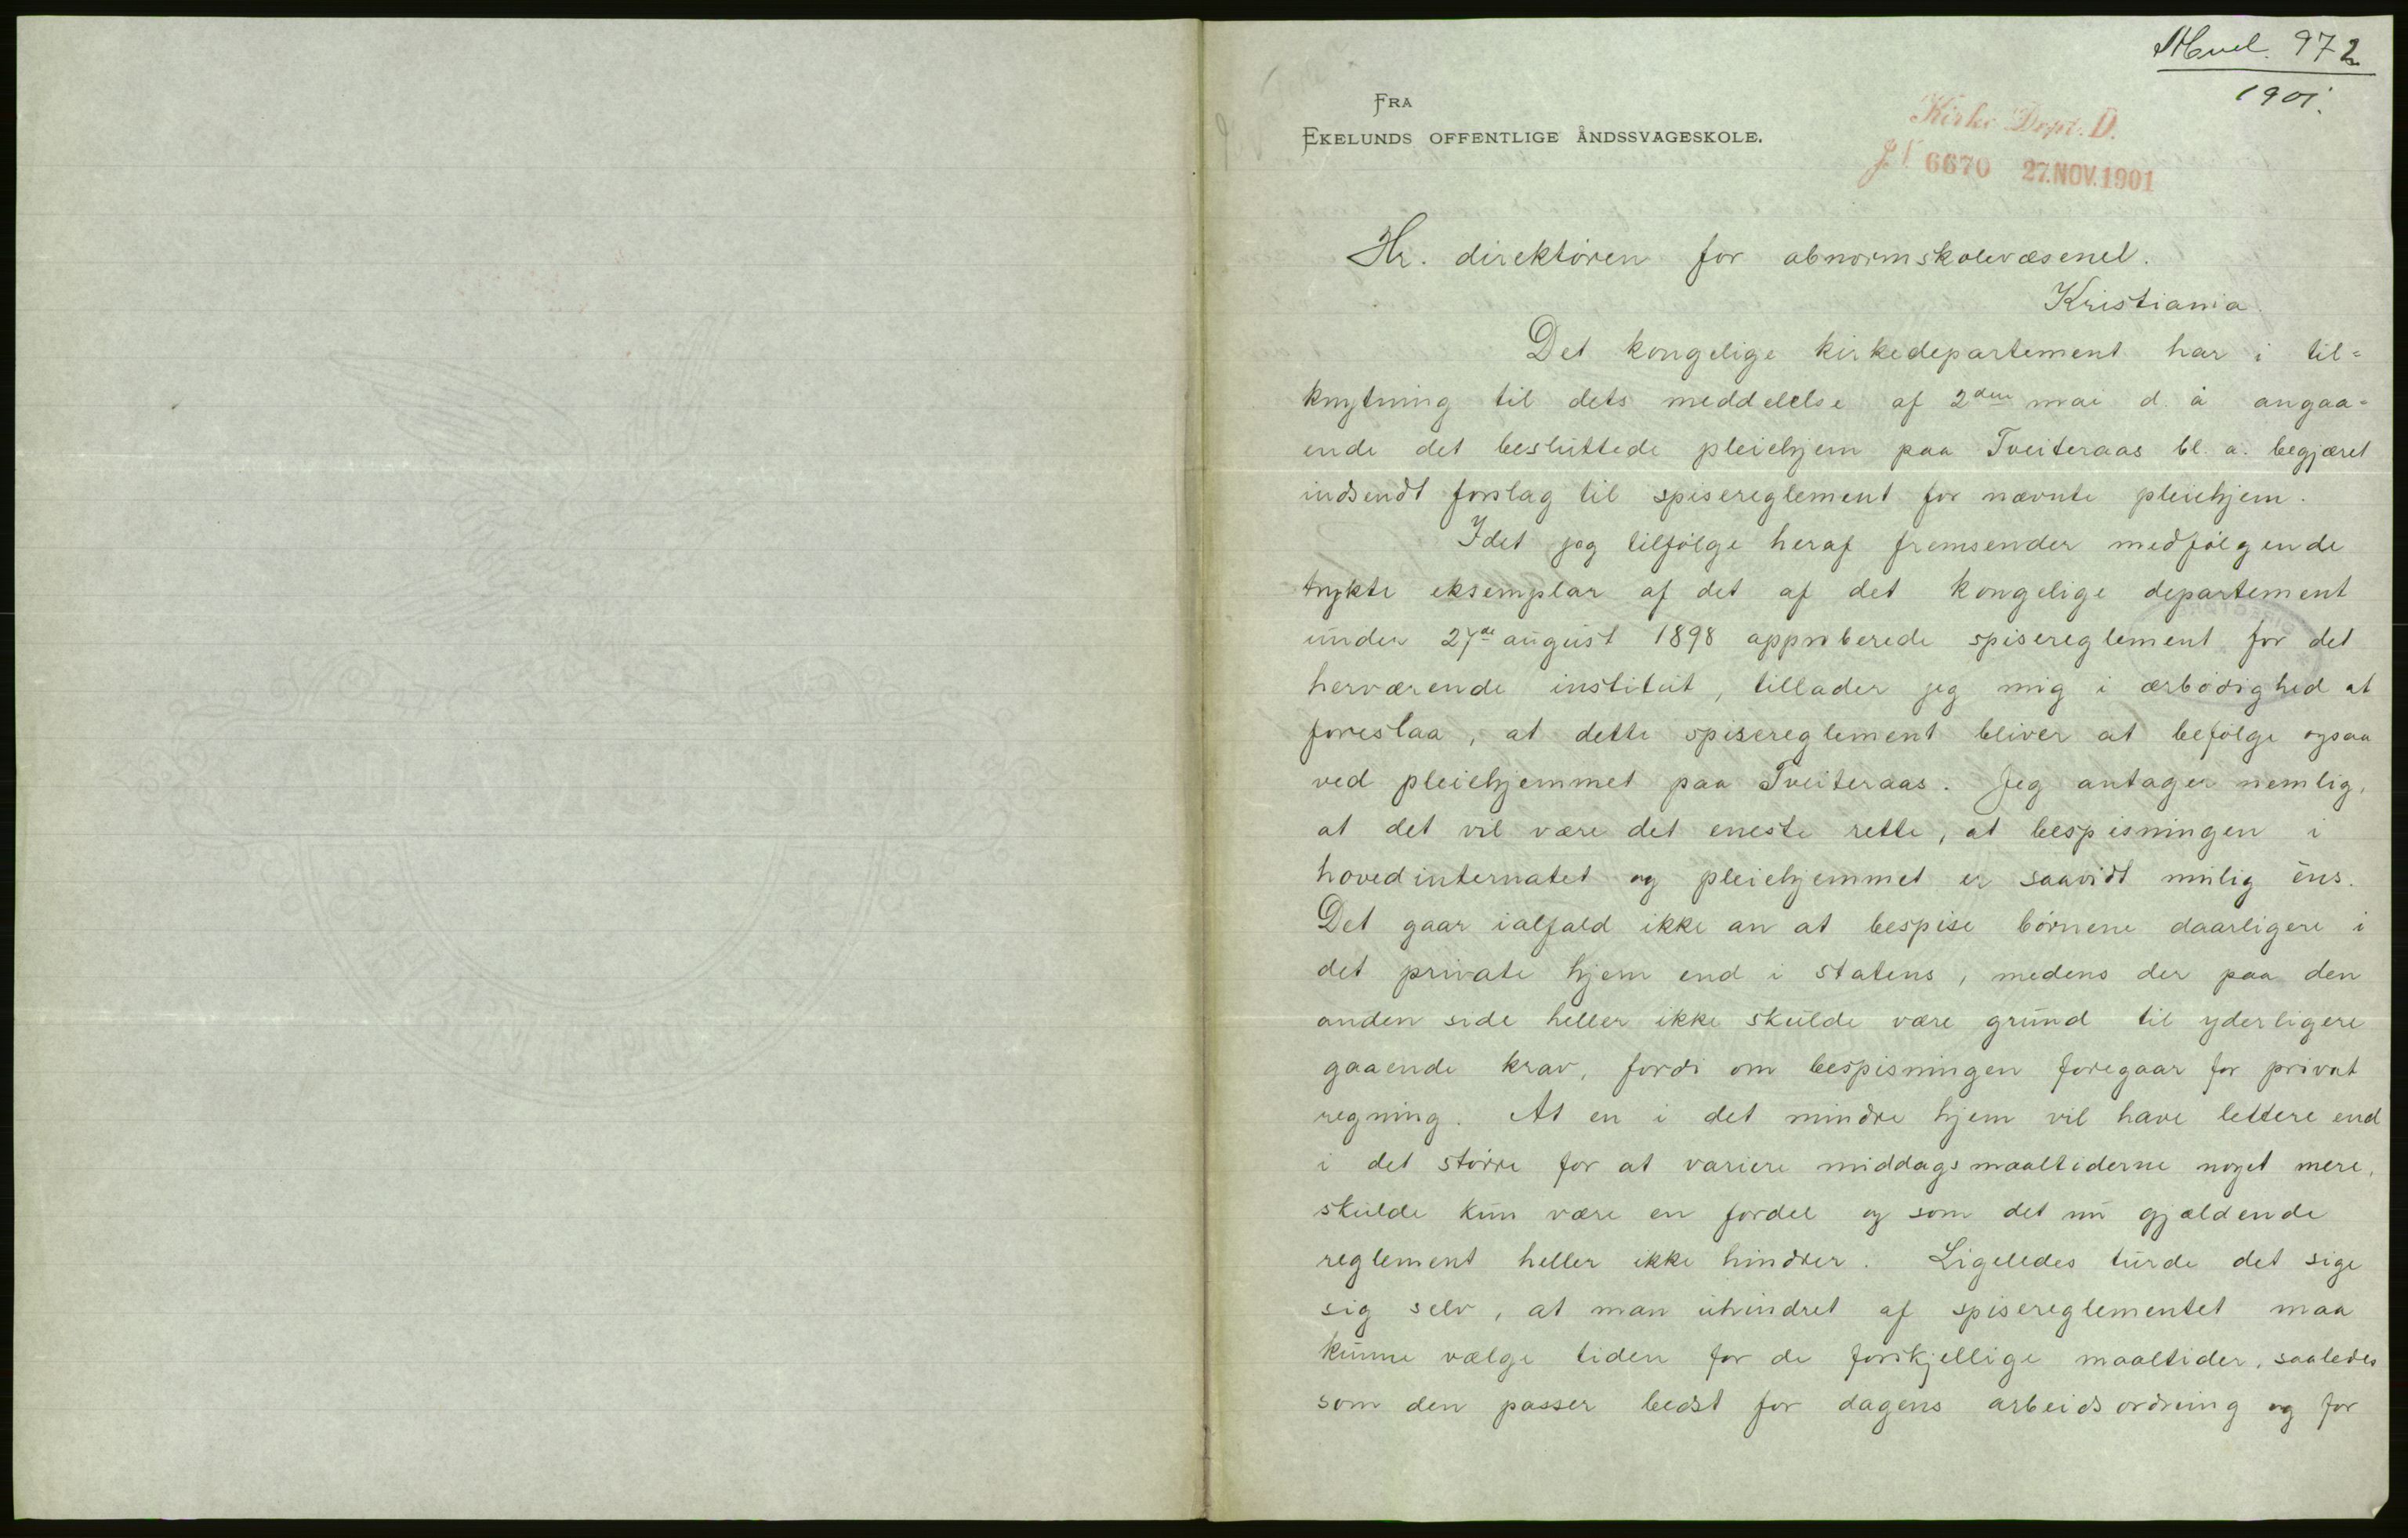 972
1901.
FRA
EKELUNDS OFFENTLIGE ÅNDSSVAGESKOLE.
Kirke Dept. D.
JN 6670 27.NOV.1901
Hr. direktören for abnormskolevæsenet.
Kristiania.
Det kongelige kirkedepartement har i til=
knytning til dets meddelelse af 2den mai d. å angaa=
ende det besluttede pleiehjem paa Tveiteraas bl. a. begjæret
indsendt forslag til spisereglement for nævnte pleiehjem.
Idet jeg tilfölge heraf fremsender medfölgende
trykte eksemplar af det af det kongelige departement
under 27de august 1898 approberede spisereglement for det
herværende institut, tillader jeg mig i ærbödighed at
foreslaa, at dette spisereglement bliver at befölge ogsaa
ved pleiehjemmet paa Tveiteraas. Jeg antager nemlig,
at det vil være det eneste rette, at bespisningen i
hovedinternatet og pleiehjemmet er saavidt mulig ens.
Det gaar ialfald ikke an at bespise börnene daarligere i
det private hjem end i statens, medens der paa den
anden side heller ikke skulde være grund til yderligere
gaaende krav, fordi om bespisningen foregaar for privat
regning. At en i det mindre hjem vil have lettere end
i det större for at variere middagsmaaltiderne noget mere,
skulde kun være en fordel og som det nu gjældende
reglement heller ikke hindrer. Ligeledes turde det sige
sig selv, at man uhindret af spisereglementet maa
kunne vælge tiden for de forskjellige maaltider, saaledes
som den passer bedst for dagens arbeidsordning og for